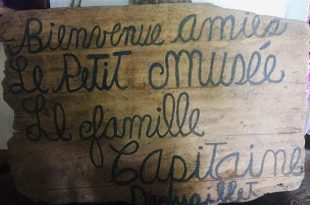 Bienvenue amies
Le Petit Musée
LL famille
Capitaine